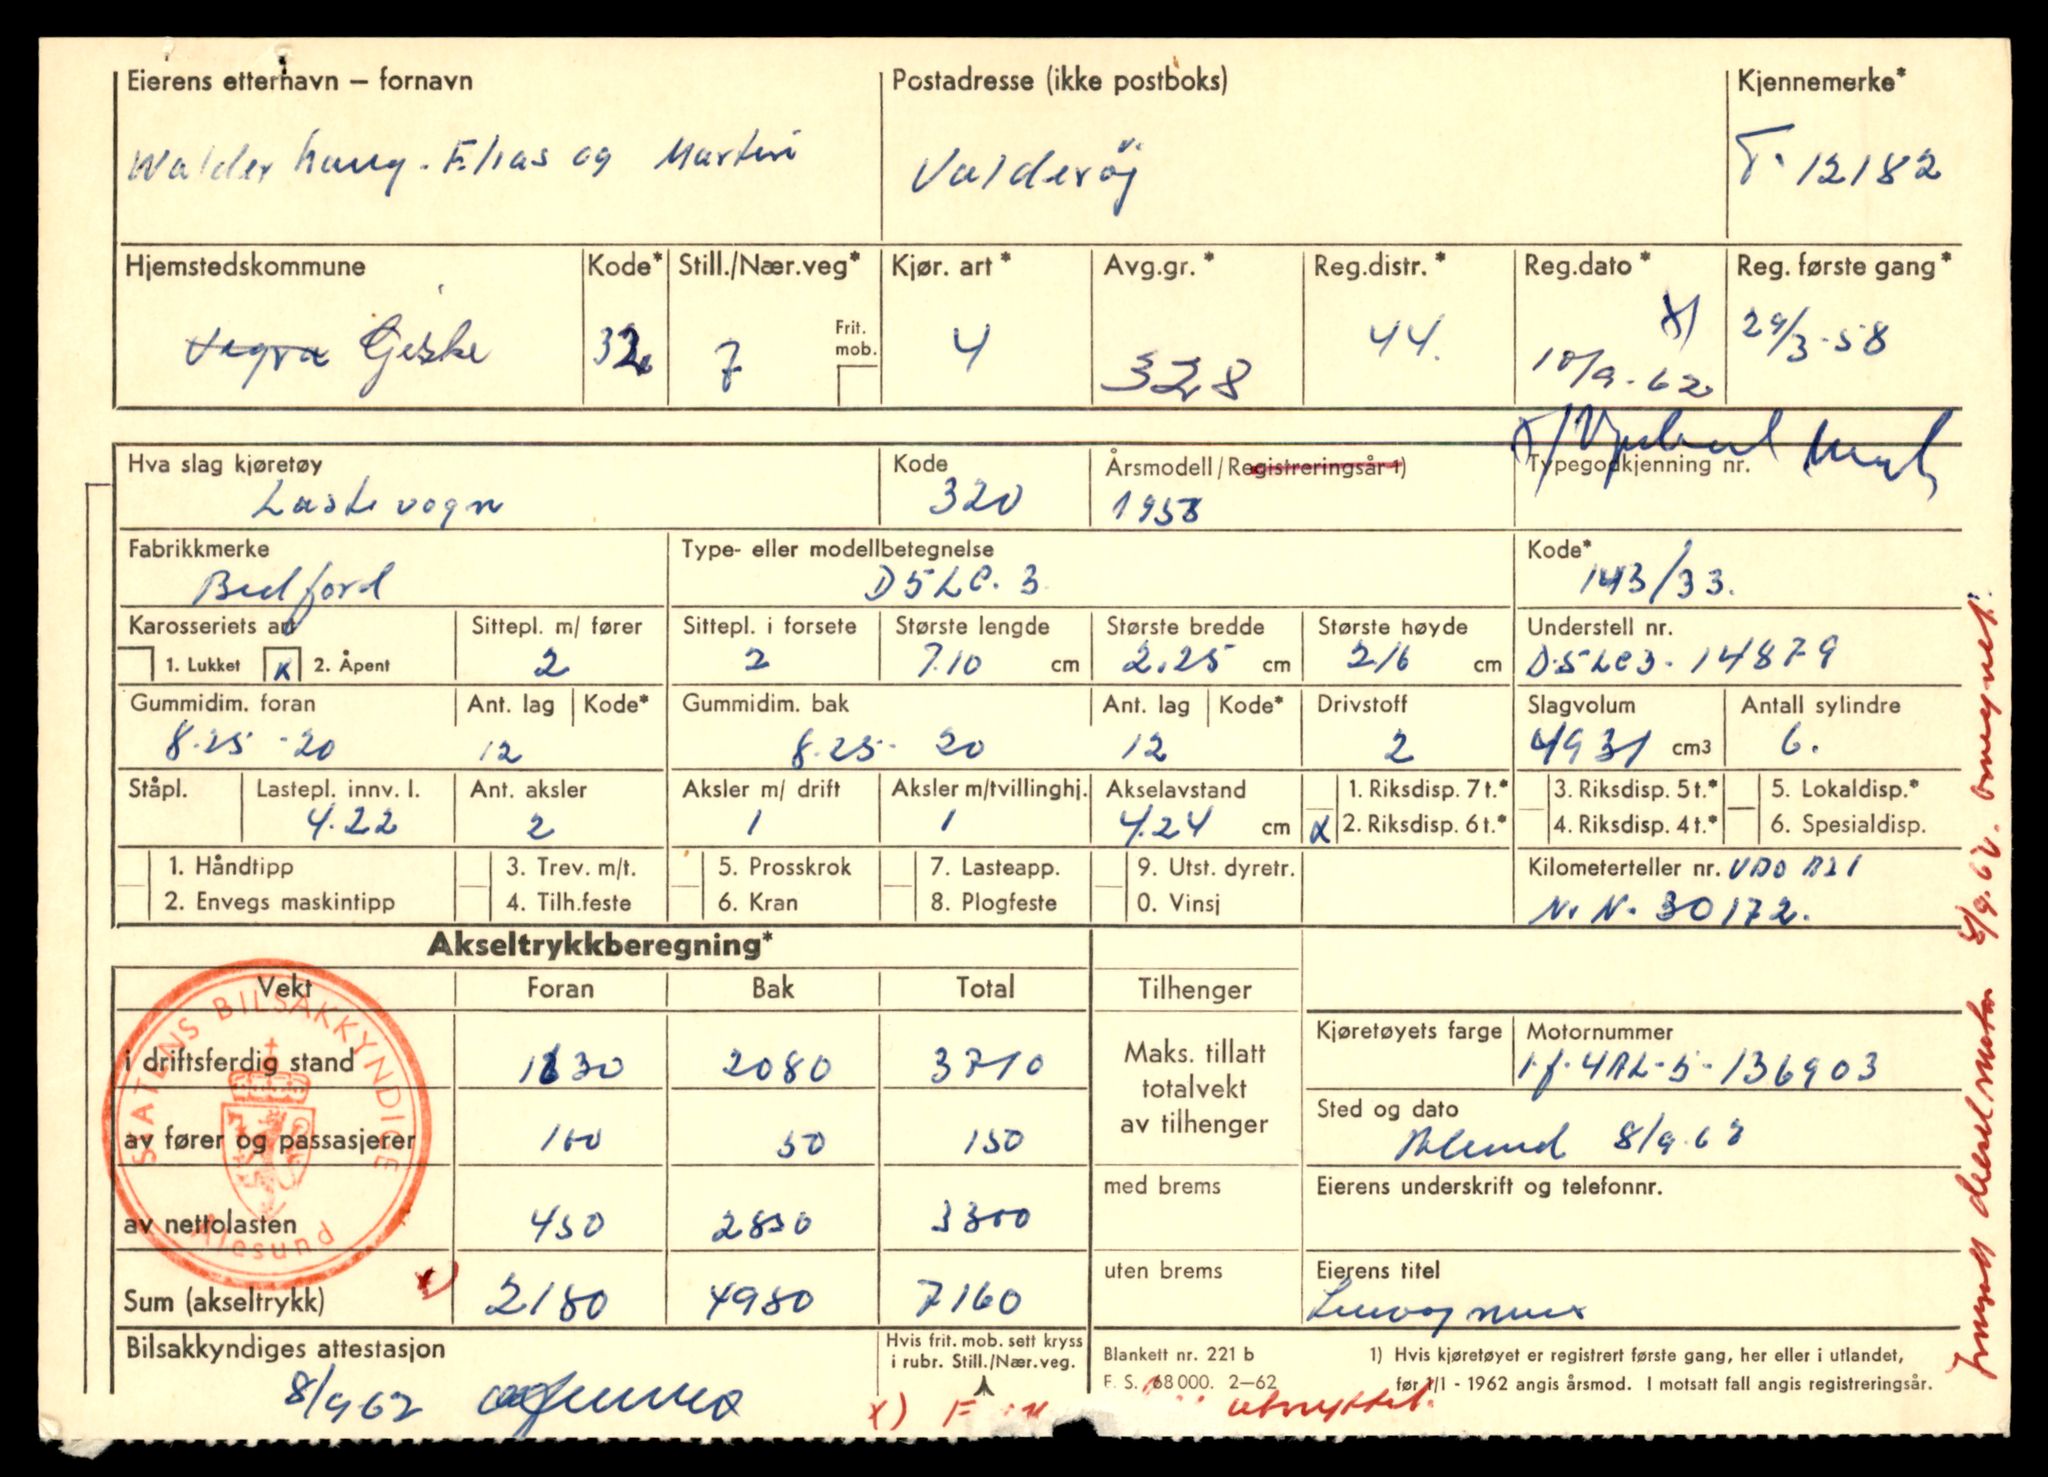 Eierens etternavn – fornavn
Postadresse (ikke postboks)
Kjennemerke*
Walderhaug. Elias og Martin
Valderøj
T. 12182
Hjemstedskommune
Kode*
Still./Nær.veg*
Kjør. art*
Avg.gr.*
Reg.distr.*
Reg.dato*
Reg. første gang*
Vegra Giske
32
7
Frit. mob.
4
328
44.
x)
10/9-62
29/3-58
x)
Hva slag kjøretøy
Kode
Årsmodell/Registreringsår 1)
Typegodkjenning nr.
Lastevogn
320
1958
Fabrikkmerke
Type- eller modellbetegnelse
Kode*
Bedford
D5LC.3
143/33.
Karosseriets art
Sittepl. m/ fører
Sittepl. i forsete
Største lengde
Største bredde
Største høyde
Understell nr.
1. Lukket
x 2. Åpent
2
2
7.10 cm
2.25 cm
216 cm
D.5LC3-14879
Gummidim. foran
Ant. lag
Kode*
Gummidim. bak
Ant. lag
Kode*
Drivstoff
Slagvolum
Antall sylindre
8.25-20
12
8.25-20
12
2
4931 cm3
6.
Ståpl.
Lastepl. innv. l.
Ant. aksler
Aksler m/ drift
Aksler m/tvillinghj.
Akselavstand
1. Riksdisp. 7 t.*
3. Riksdisp. 5 t.*
5. Lokaldisp.*
4.22
2
1
1
4.24 cm
x 2. Riksdisp. 6 t.*
4. Riksdisp. 4 t.*
6. Spesialdisp.
1. Håndtipp
3. Trev. m/t.
5. Prosskrok
7. Lasteapp.
9. Utst. dyretr.
Kilometerteller nr. VDO
2. Envegs maskintipp
4. Tilh.feste
6. Kran
8. Plogfeste
0. Vinsj
N. N. 30172.
Akseltrykkberegning*
Vekt
Foran
Bak
Total
Tilhenger
i driftsferdig stand
1630
2080
3710
Maks. tillatt totalvekt av tilhenger
Kjøretøyets farge
Motornummer
136903
av fører og passasjerer
100
50
150
Sted og dato
Ålesund 8/9-62
av nettolasten
450
2850
3300
med brems
Eierens underskrift og telefonnr.
Sum (akseltrykk)
x)
2180
4980
7160
uten brems
Eierens titel
STATENS BILSAKKYNDIGE
Ålesund
Bilsakkyndiges attestasjon
8/9 62
Hvis frit. mob. sett kryss
i rubr. Still./Nær.veg.
Blankett nr. 221 b
F. S. 68 000. 2–62
1) Hvis kjøretøyet er registrert første gang, her eller i utlandet,
før 1/1 - 1962 angis årsmod. I motsatt fall angis registreringsår.
x)
utnyttet.
Innsatt dieselmotor 8/9.62. omregnet.